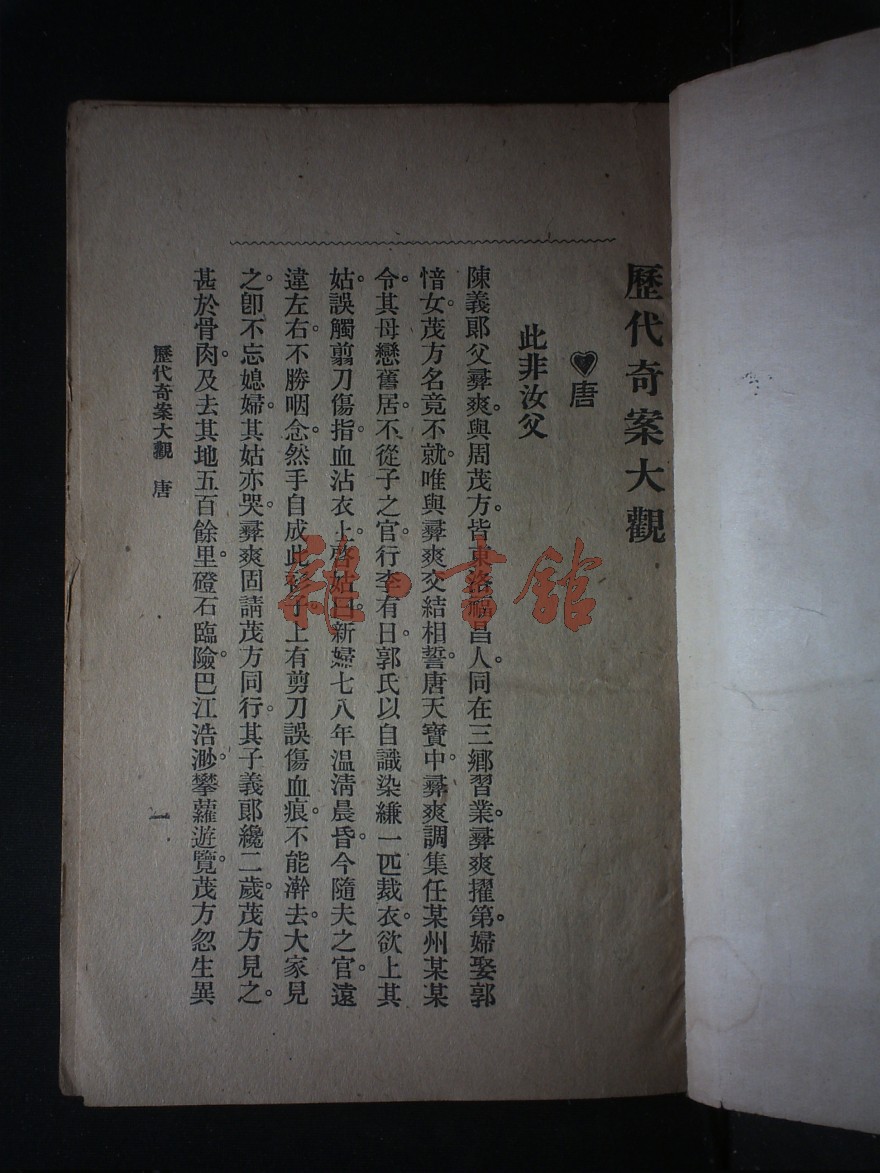 歷代奇案大觀
唐
此非汝父
陳義郞父彝爽。與周茂方。皆東洛福昌人。同在三鄉習業。彝爽擢第。婦娶郭
愔女。茂方名竟不就。唯與彝爽交結相誓。唐天寶中。彝爽調集任某州某某
令。其母戀舊居。不從子之官。行李有日。郭氏以自識染縑一匹裁衣。欲上其
姑。誤觸翦刀傷指。血沾衣上。啓姑曰。新婦七八年温凊晨昏。今隨夫之官。遠
違左右。不勝咽念。然手自成此衫子。上有剪刀誤傷血痕。不能澣去。大家見
之。卽不忘媳婦。其姑亦哭。彝爽固請茂方同行。其子義郞纔二歲。茂方見之。
甚於骨肉。及去其地五百餘里。磴石臨險。巴江浩渺。攀蘿遊覽。茂方忽生異
歷代奇案大觀　唐
一
雜·書館